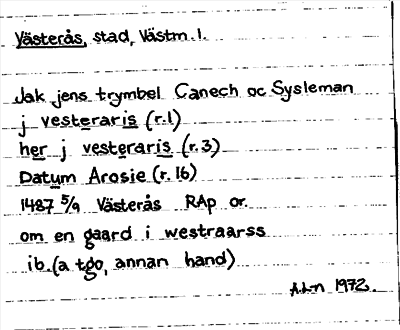 Västerås, stad, Västm. l.
Jak jens trymbel Canech oc Sysleman
j vesteraris (r.1)
her j vesteraris (r.3)
Datum Arosie (r. 16)
1487 5/9 Västerås RAp or.
om en gaard i westraarss
ib. (a tgo, annan hand)
1972.